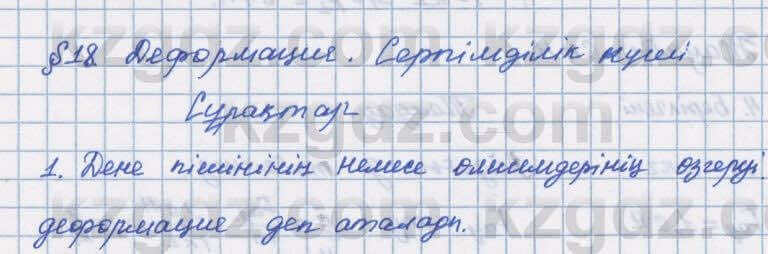 §18 Деформация. Серпімділік күші
Сұрақтар
1. Дене пішінінің немесе өлшемдерінің өзгеруі
деформация деп аталады.
kzgdz.com